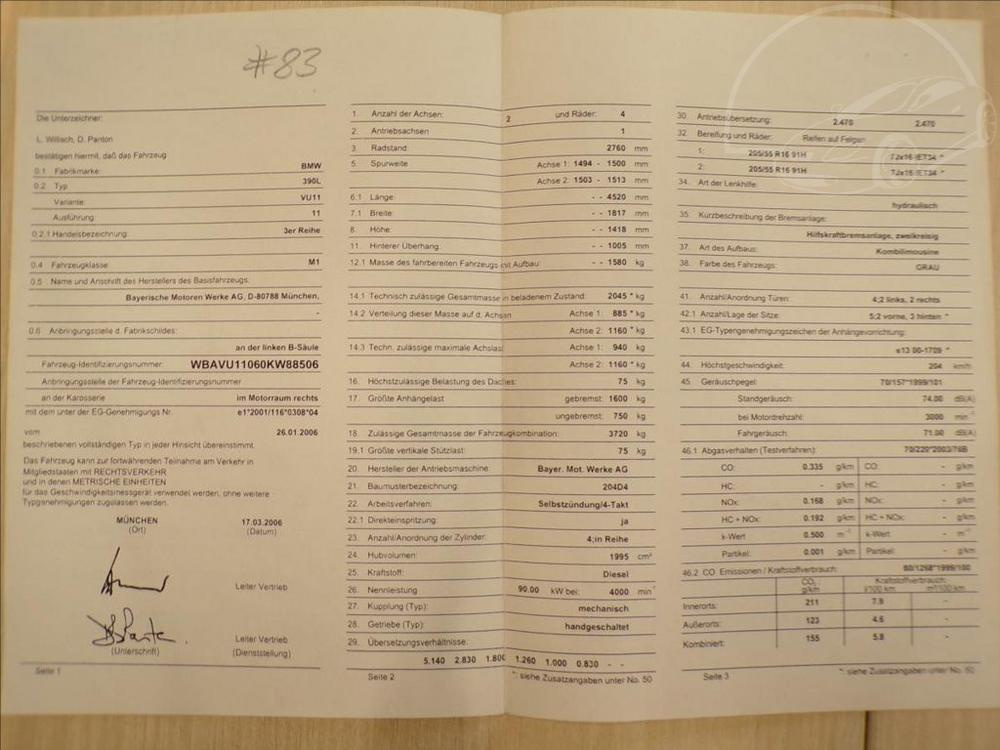 #83
Die Unterzeichner:
L. Willisch, D. Panton
bestätigen hiermit, daß das Fahrzeug
0.1 Fabrikmarke: BMW
0.2 Typ 390L
Variante: VU11
Ausführung: 11
0.2.1 Handelsbezeichnung: 3er Reihe
0.4 Fahrzeugklasse: M1
0.5 Name und Anschrift des Herstellers des Basisfahrzeugs:
Bayerische Motoren Werke AG, D-80788 München,
-
0.6 Anbringungsstelle d. Fabrikschildes:
an der linken B-Säule
Fahrzeug-Identifizierungsnummer: WBAVU11060KW88506
Anbringungsstelle der Fahrzeug-Identifizierungsnummer
an der Karosserie im Motorraum rechts
mit dem unter der EG-Genehmigungs Nr. e1*2001/116*0308*04
vom 26.01.2006
beschriebenen vollständigen Typ in jeder Hinsicht übereinstimmt.
Das Fahrzeug kann zur fortwährenden Teilnahme am Verkehr in
Mitgliedstaaten mit RECHTSVERKEHR
und in denen METRISCHE EINHEITEN
für das Geschwindigkeitsmessgerät verwendet werden, ohne weitere
Typgenehmigungen zugelassen werden.
MÜNCHEN 17.03.2006
(Ort) (Datum)
Leiter Vertrieb
Leiter Vertrieb
(Unterschrift) (Dienststellung)
Seite 1
1. Anzahl der Achsen: 2 und Räder: 4
2. Antriebsachsen 1
3. Radstand: 2760 mm
5. Spurweite Achse 1: 1494 - 1500 mm
Achse 2: 1503 - 1513 mm
6.1 Länge: - - 4520 mm
7.1 Breite: - - 1817 mm
8. Höhe: - - 1418 mm
11. Hinterer Überhang: - - 1005 mm
12.1 Masse des fahrbereiten Fahrzeugs mit Aufbau: - - 1580 kg
14.1 Technisch zulässige Gesamtmasse in beladenem Zustand: 2045 * kg
14.2 Verteilung dieser Masse auf d. Achsen Achse 1: 885 * kg
Achse 2: 1160 * kg
14.3 Techn. zulässige maximale Achslast Achse 1: 940 kg
Achse 2: 1160 * kg
16. Höchstzulässige Belastung des Daches: 75 kg
17. Größte Anhängelast gebremst: 1600 kg
ungebremst: 750 kg
18. Zulässige Gesamtmasse der Fahrzeugkombination: 3720 kg
19.1 Größte vertikale Stützlast: 75 kg
20. Hersteller der Antriebsmaschine: Bayer. Mot. Werke AG
21. Baumusterbezeichnung: 204D4
22. Arbeitsverfahren: Selbstzündung/4-Takt
22.1 Direkteinspritzung: ja
23. Anzahl/Anordnung der Zylinder: 4;in Reihe
24. Hubvolumen: 1995 cm³
25. Kraftstoff: Diesel
26. Nennleistung 90.00 kW bei: 4000 min⁻¹
27. Kupplung (Typ): mechanisch
28. Getriebe (Typ): handgeschaltet
29. Übersetzungsverhältnisse:
5.140 2.830 1.800 1.260 1.000 0.830 - -
Seite 2 *: siehe Zusatzangaben unter No. 50
30. Antriebsübersetzung: 2.470 2.470
32. Bereifung und Räder: Reifen auf Felgen
1: 205/55 R16 91H 7Jx16 IET34 *
2: 205/55 R16 91H 7Jx16 IET34 *
34. Art der Lenkhilfe:
hydraulisch
35. Kurzbeschreibung der Bremsanlage:
Hilfskraftbremsanlage, zweikreisig
37. Art des Aufbaus: Kombilimousine
38. Farbe des Fahrzeugs: GRAU
41. Anzahl/Anordnung Türen: 4;2 links, 2 rechts
42.1 Anzahl/Lage der Sitze: 5;2 vorne, 3 hinten *
43.1 EG-Typengenehmigungszeichen der Anhängevorrichtung:
e13 00-1709 *
44. Höchstgeschwindigkeit: 204 km/h
45. Geräuschpegel: 70/157*1999/101
Standgeräusch: 74.00 dB(A)
bei Motordrehzahl: 3000 min⁻¹
Fahrgeräusch: 71.00 dB(A)
46.1 Abgasverhalten (Testverfahren): 70/220*2003/76B
CO: 0.335 g/km CO: - g/km
HC: - g/km HC: - g/km
NOx: 0.168 g/km NOx: - g/km
HC + NOx: 0.192 g/km HC + NOx: - g/km
k-Wert 0.500 m⁻¹ k-Wert - m⁻¹
Partikel: 0.001 g/km Partikel: - g/km
46.2 CO Emissionen / Kraftstoffverbrauch: 80/1268*1999/100
CO₂ Kraftstoffverbrauch:
g/km l/100 km m³/100 km
Innerorts: 211 7.9 -
Außerorts: 123 4.6 -
Kombiniert: 155 5.8 -
Seite 3 *: siehe Zusatzangaben unter No. 50